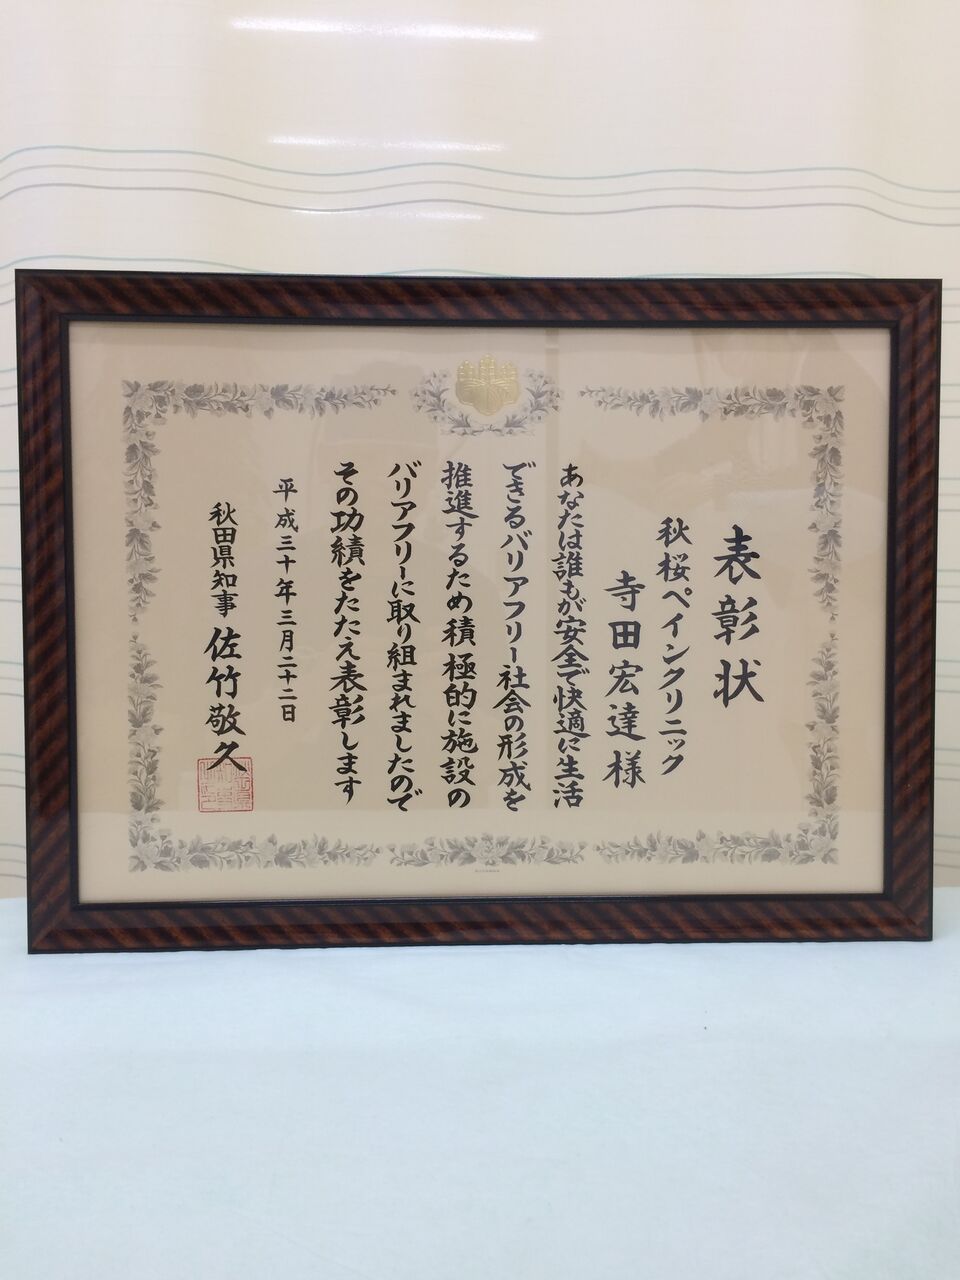 表彰状
秋桜ペインクリニック
寺田宏達様
あなたは誰もが安全で快適に生活
できるバリアフリー社会の形成を
推進するため積極的に施設の
バリアフリーに取り組まれましたので
その功績をたたえ表彰します
平成三十年三月二十二日
秋田県知事 佐竹敬久